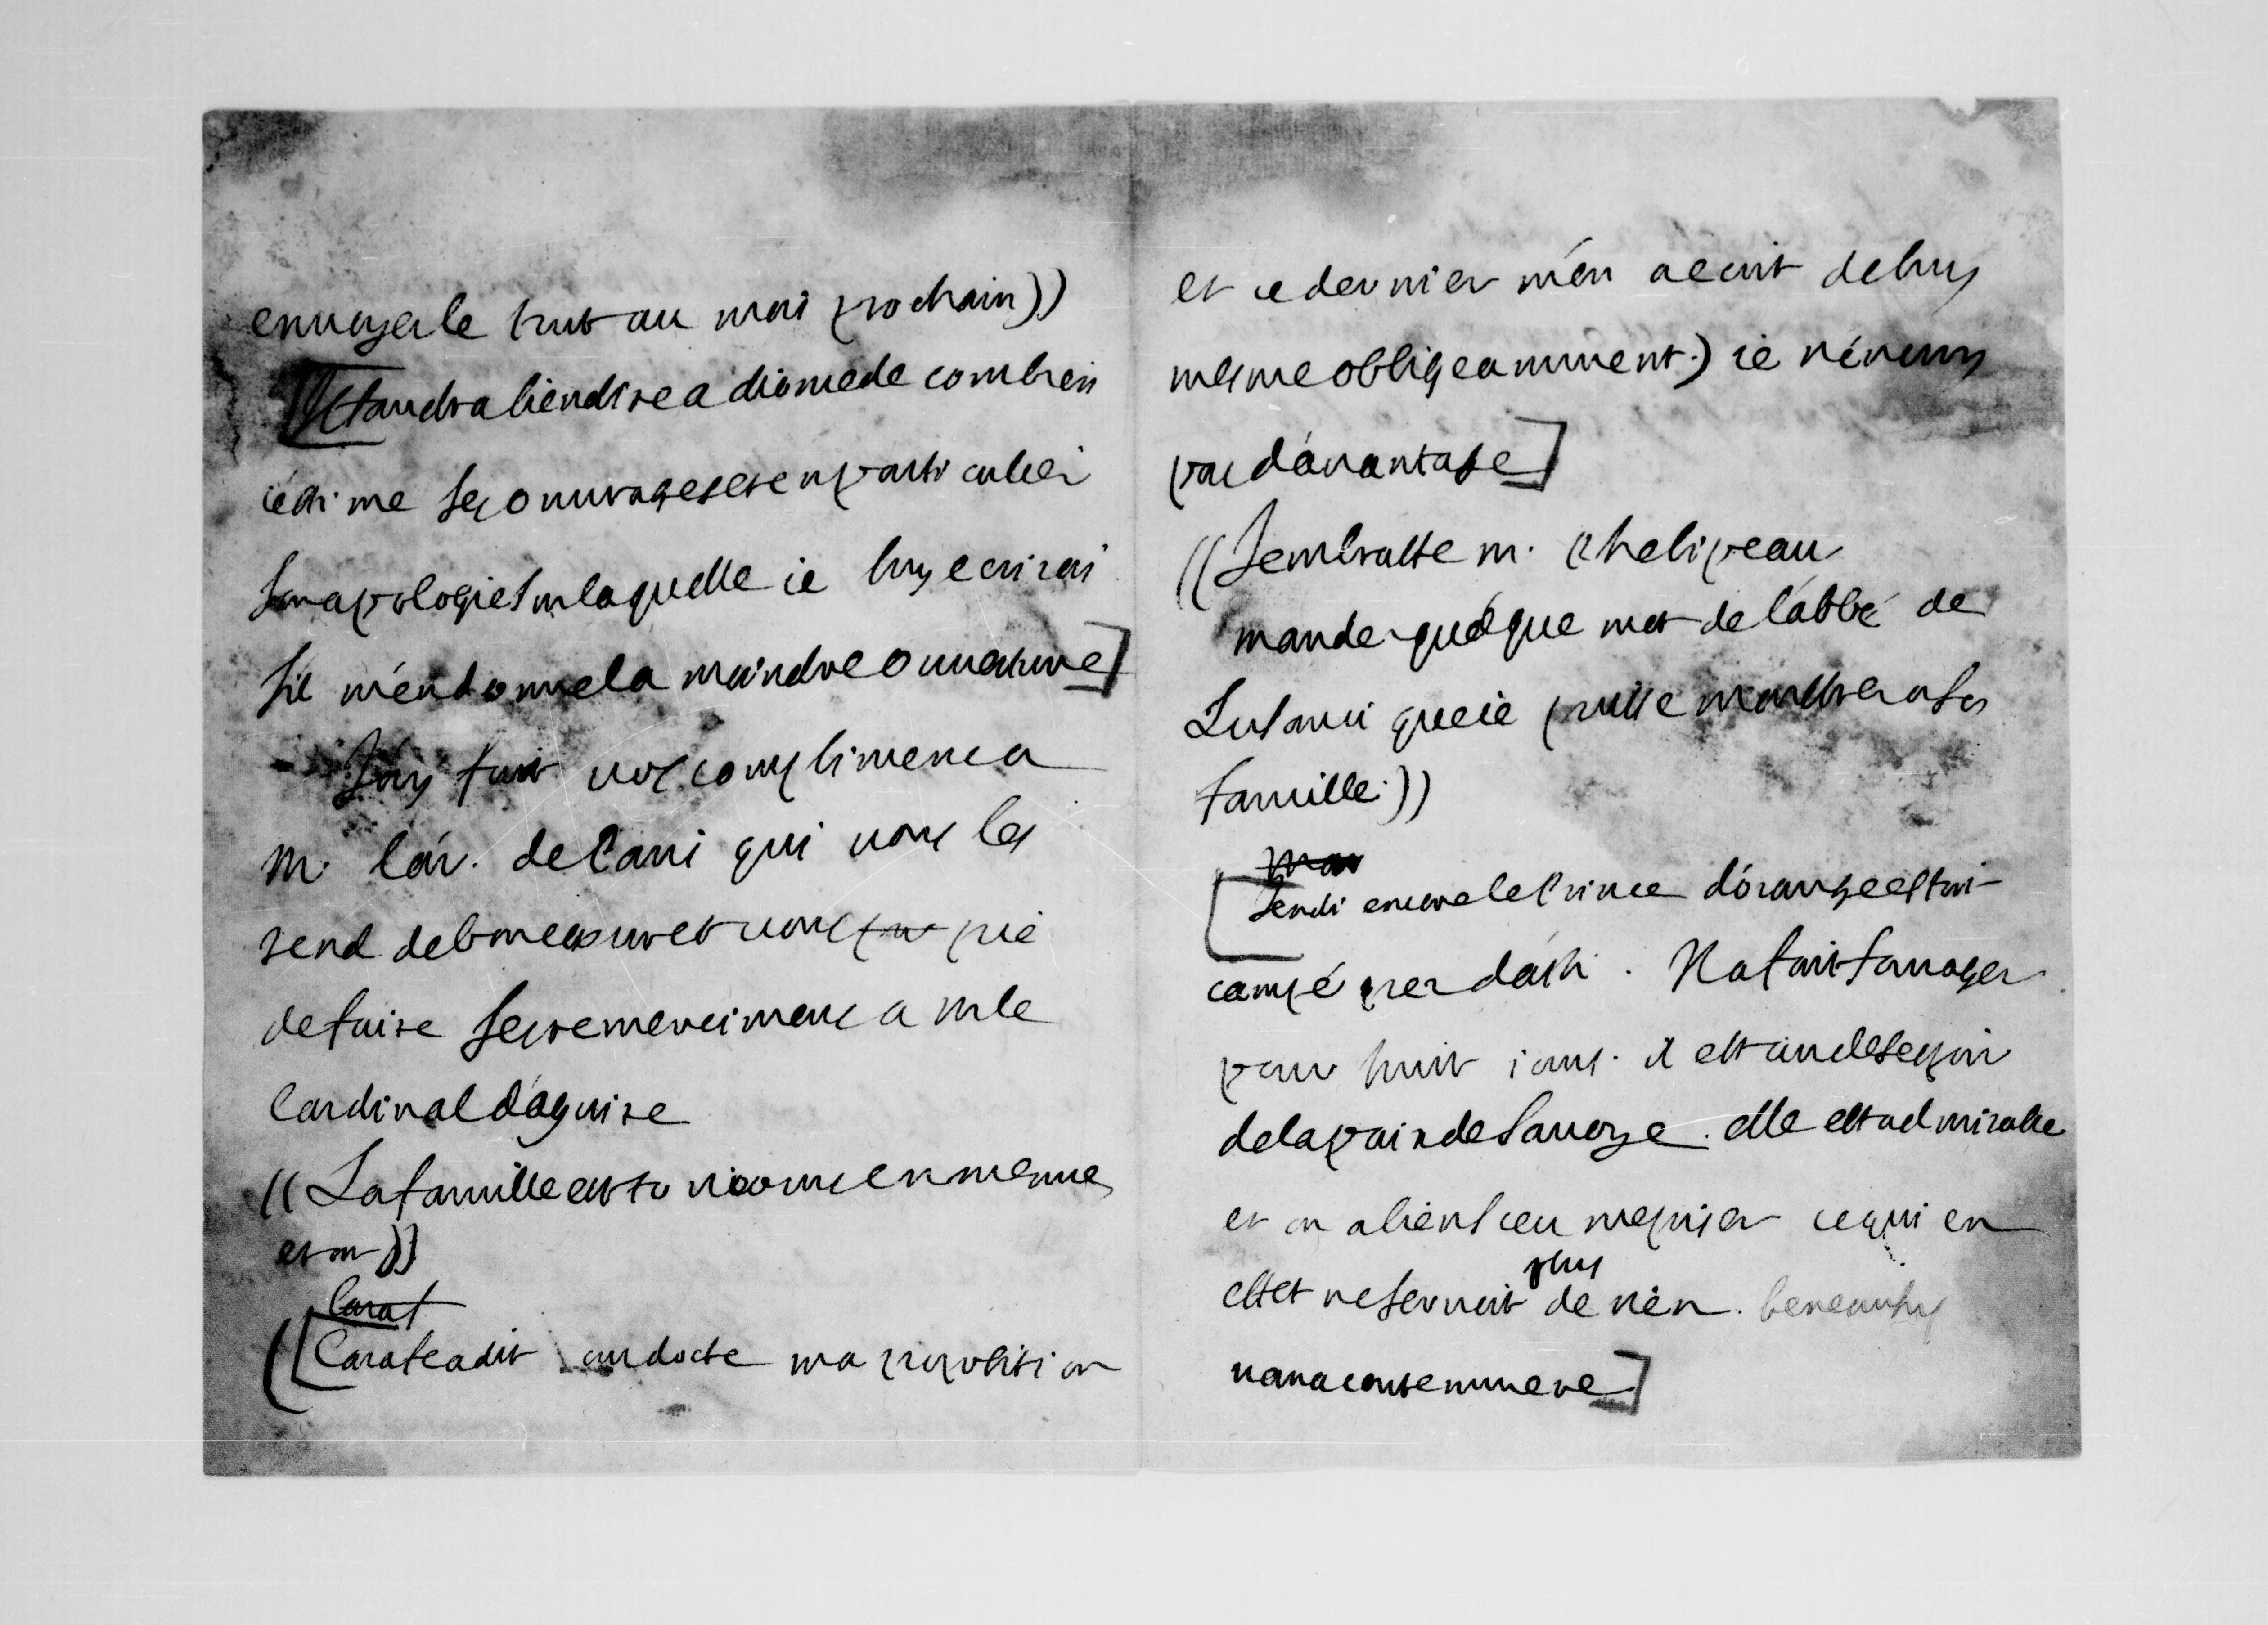 enuoyer le tout au moi prochain))
[Il faudra bien dire a diomede combien
iestime ses ouurages et en particulier
son apologie sur laquelle ie luy ecrirai
s'il m'en donne la moindre ouuerture]
J'ay fait vos complimens a
m. l'ar. de Pari qui vous les
rend de bon coeur et vous prie
de faire ses remercimens a m le
Cardinal d'aguire
((La famille est to en menne
et on))
Carat
([Carat a dit au docte ma proposition
et ce dernier m'en a ecrit de luy
mesme obligeamment.) ie n'en
pas d'auantage]
((J'embrasse m. Phelipeau
mander quelque mot de l'abbé de
Lusanci que ie puisse monstrer a sa
famille.))
[Jeudi encore le Prince d'orange estoit
campé pres d'ath. Il a fait fourager
pour huit iours. il est au desespoir
de la paix de Sauoye. elle est admirable
et on a bien sceu mepriser ce qui en
effet ne seruoit plus de rien.